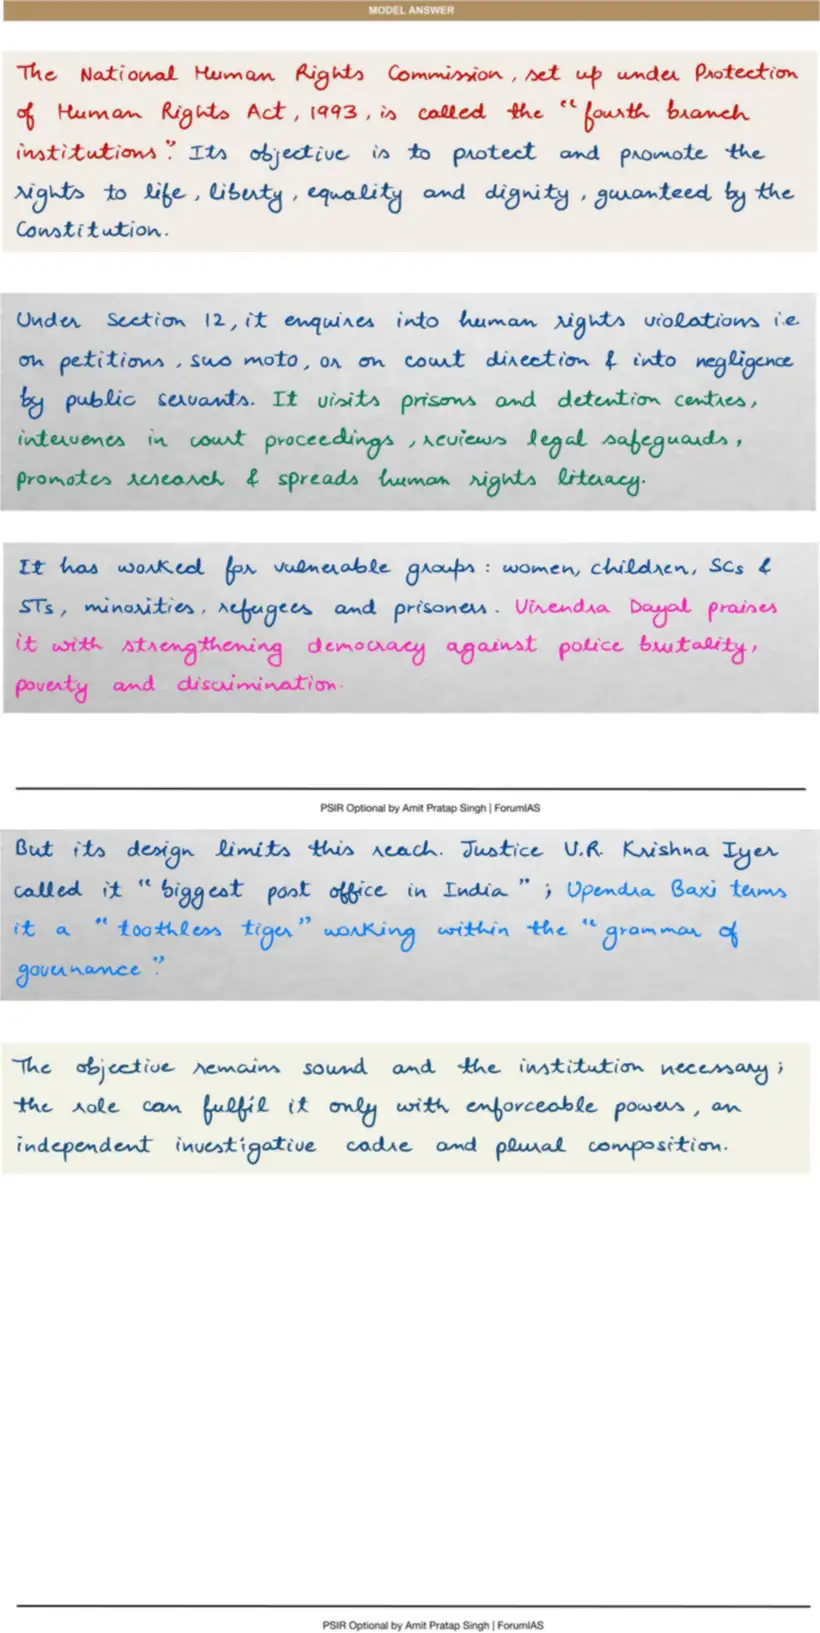 MODEL ANSWER
The National Human Rights Commission, set up under Protection
of Human Rights Act, 1993, is called the "fourth branch
institutions". Its objective is to protect and promote the
rights to life, liberty, equality and dignity, guranteed by the
Constitution.
Under Section 12, it enquires into human rights violations i.e
on petitions, suo moto, or on court direction & into negligence
by public servants. It visits prisons and detention centres,
intervenes in court proceedings, reviews legal safeguards,
promotes research & spreads human rights literacy.
It has worked for vulnerable groups: women, children, SCs &
STs, minorities, refugees and prisoners. Virendra Dayal praises
it with strengthening democracy against police brutality,
poverty and discrimination.
PSIR Optional by Amit Pratap Singh | ForumIAS
But its design limits this reach. Justice V.R. Krishna Iyer
called it "biggest post office in India"; Upendra Baxi terms
it a "toothless tiger" working within the "grammar of
governance".
The objective remains sound and the institution necessary;
the role can fulfil it only with enforceable powers, an
independent investigative cadre and plural composition.
PSIR Optional by Amit Pratap Singh | ForumIAS